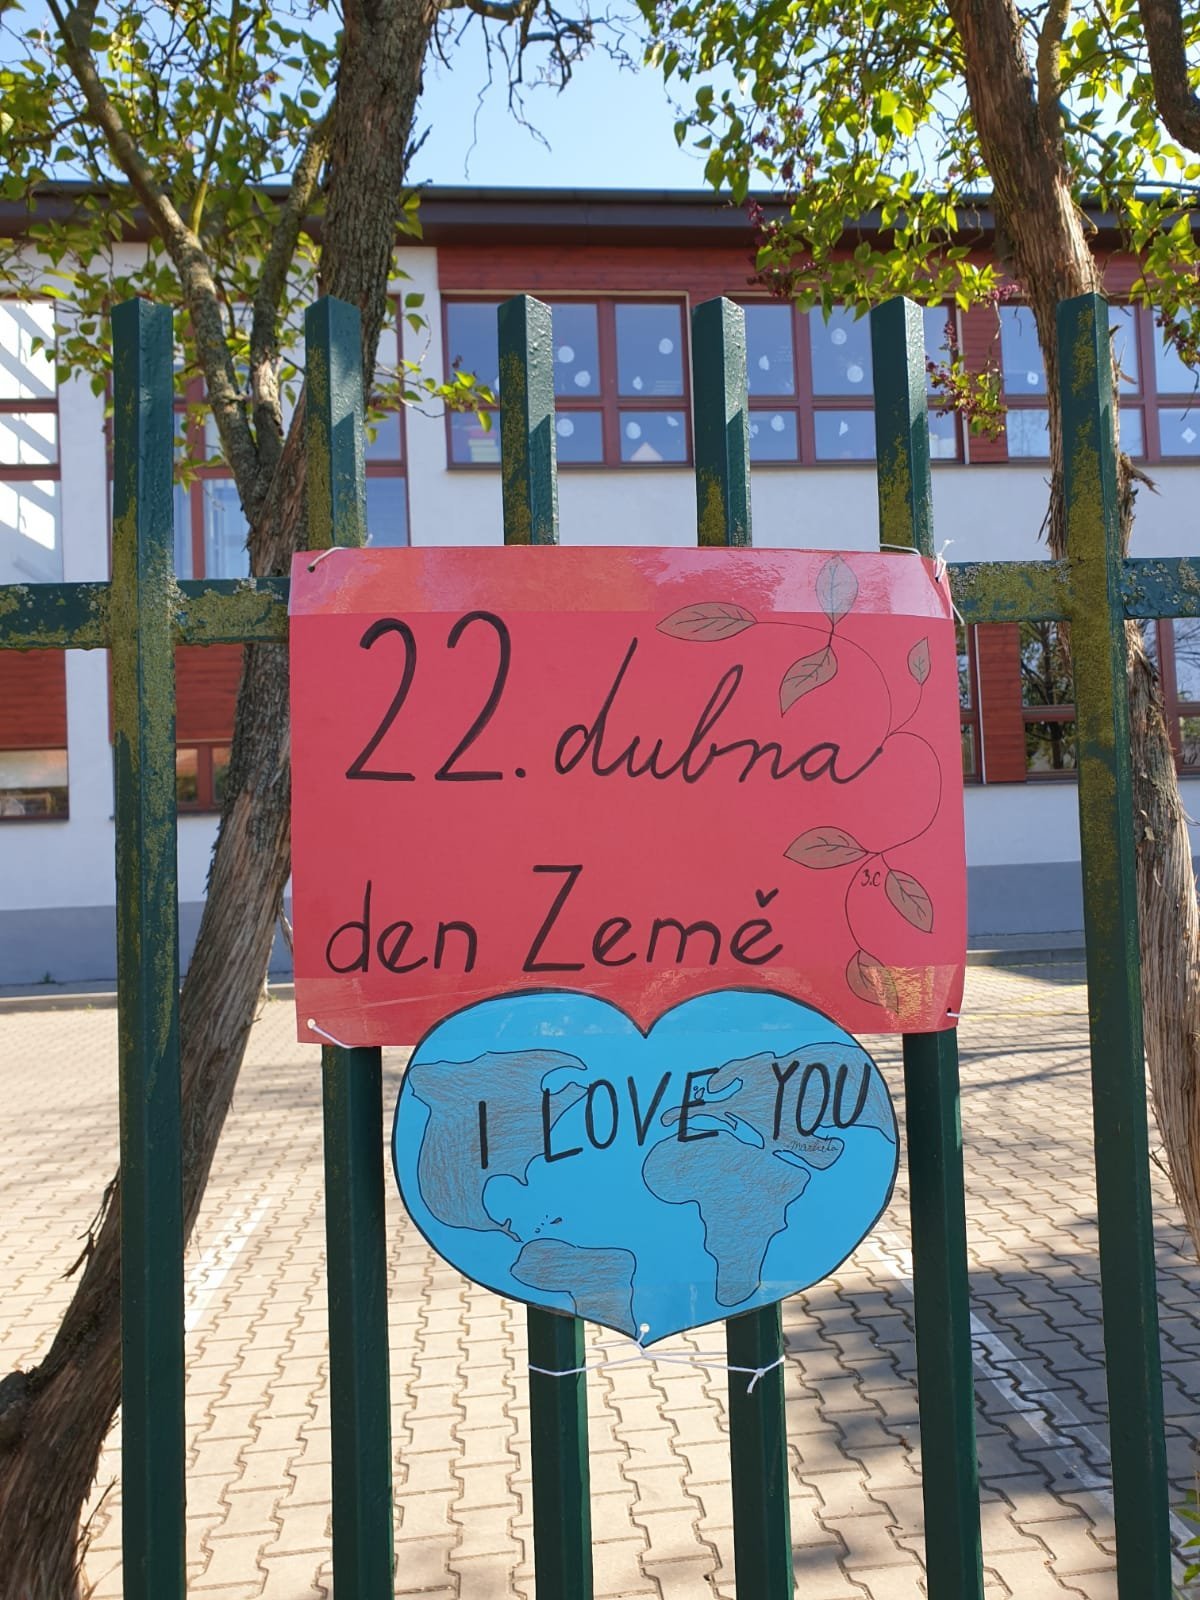 22. dubna
den Země
3.C
I LOVE YOU
Markéta